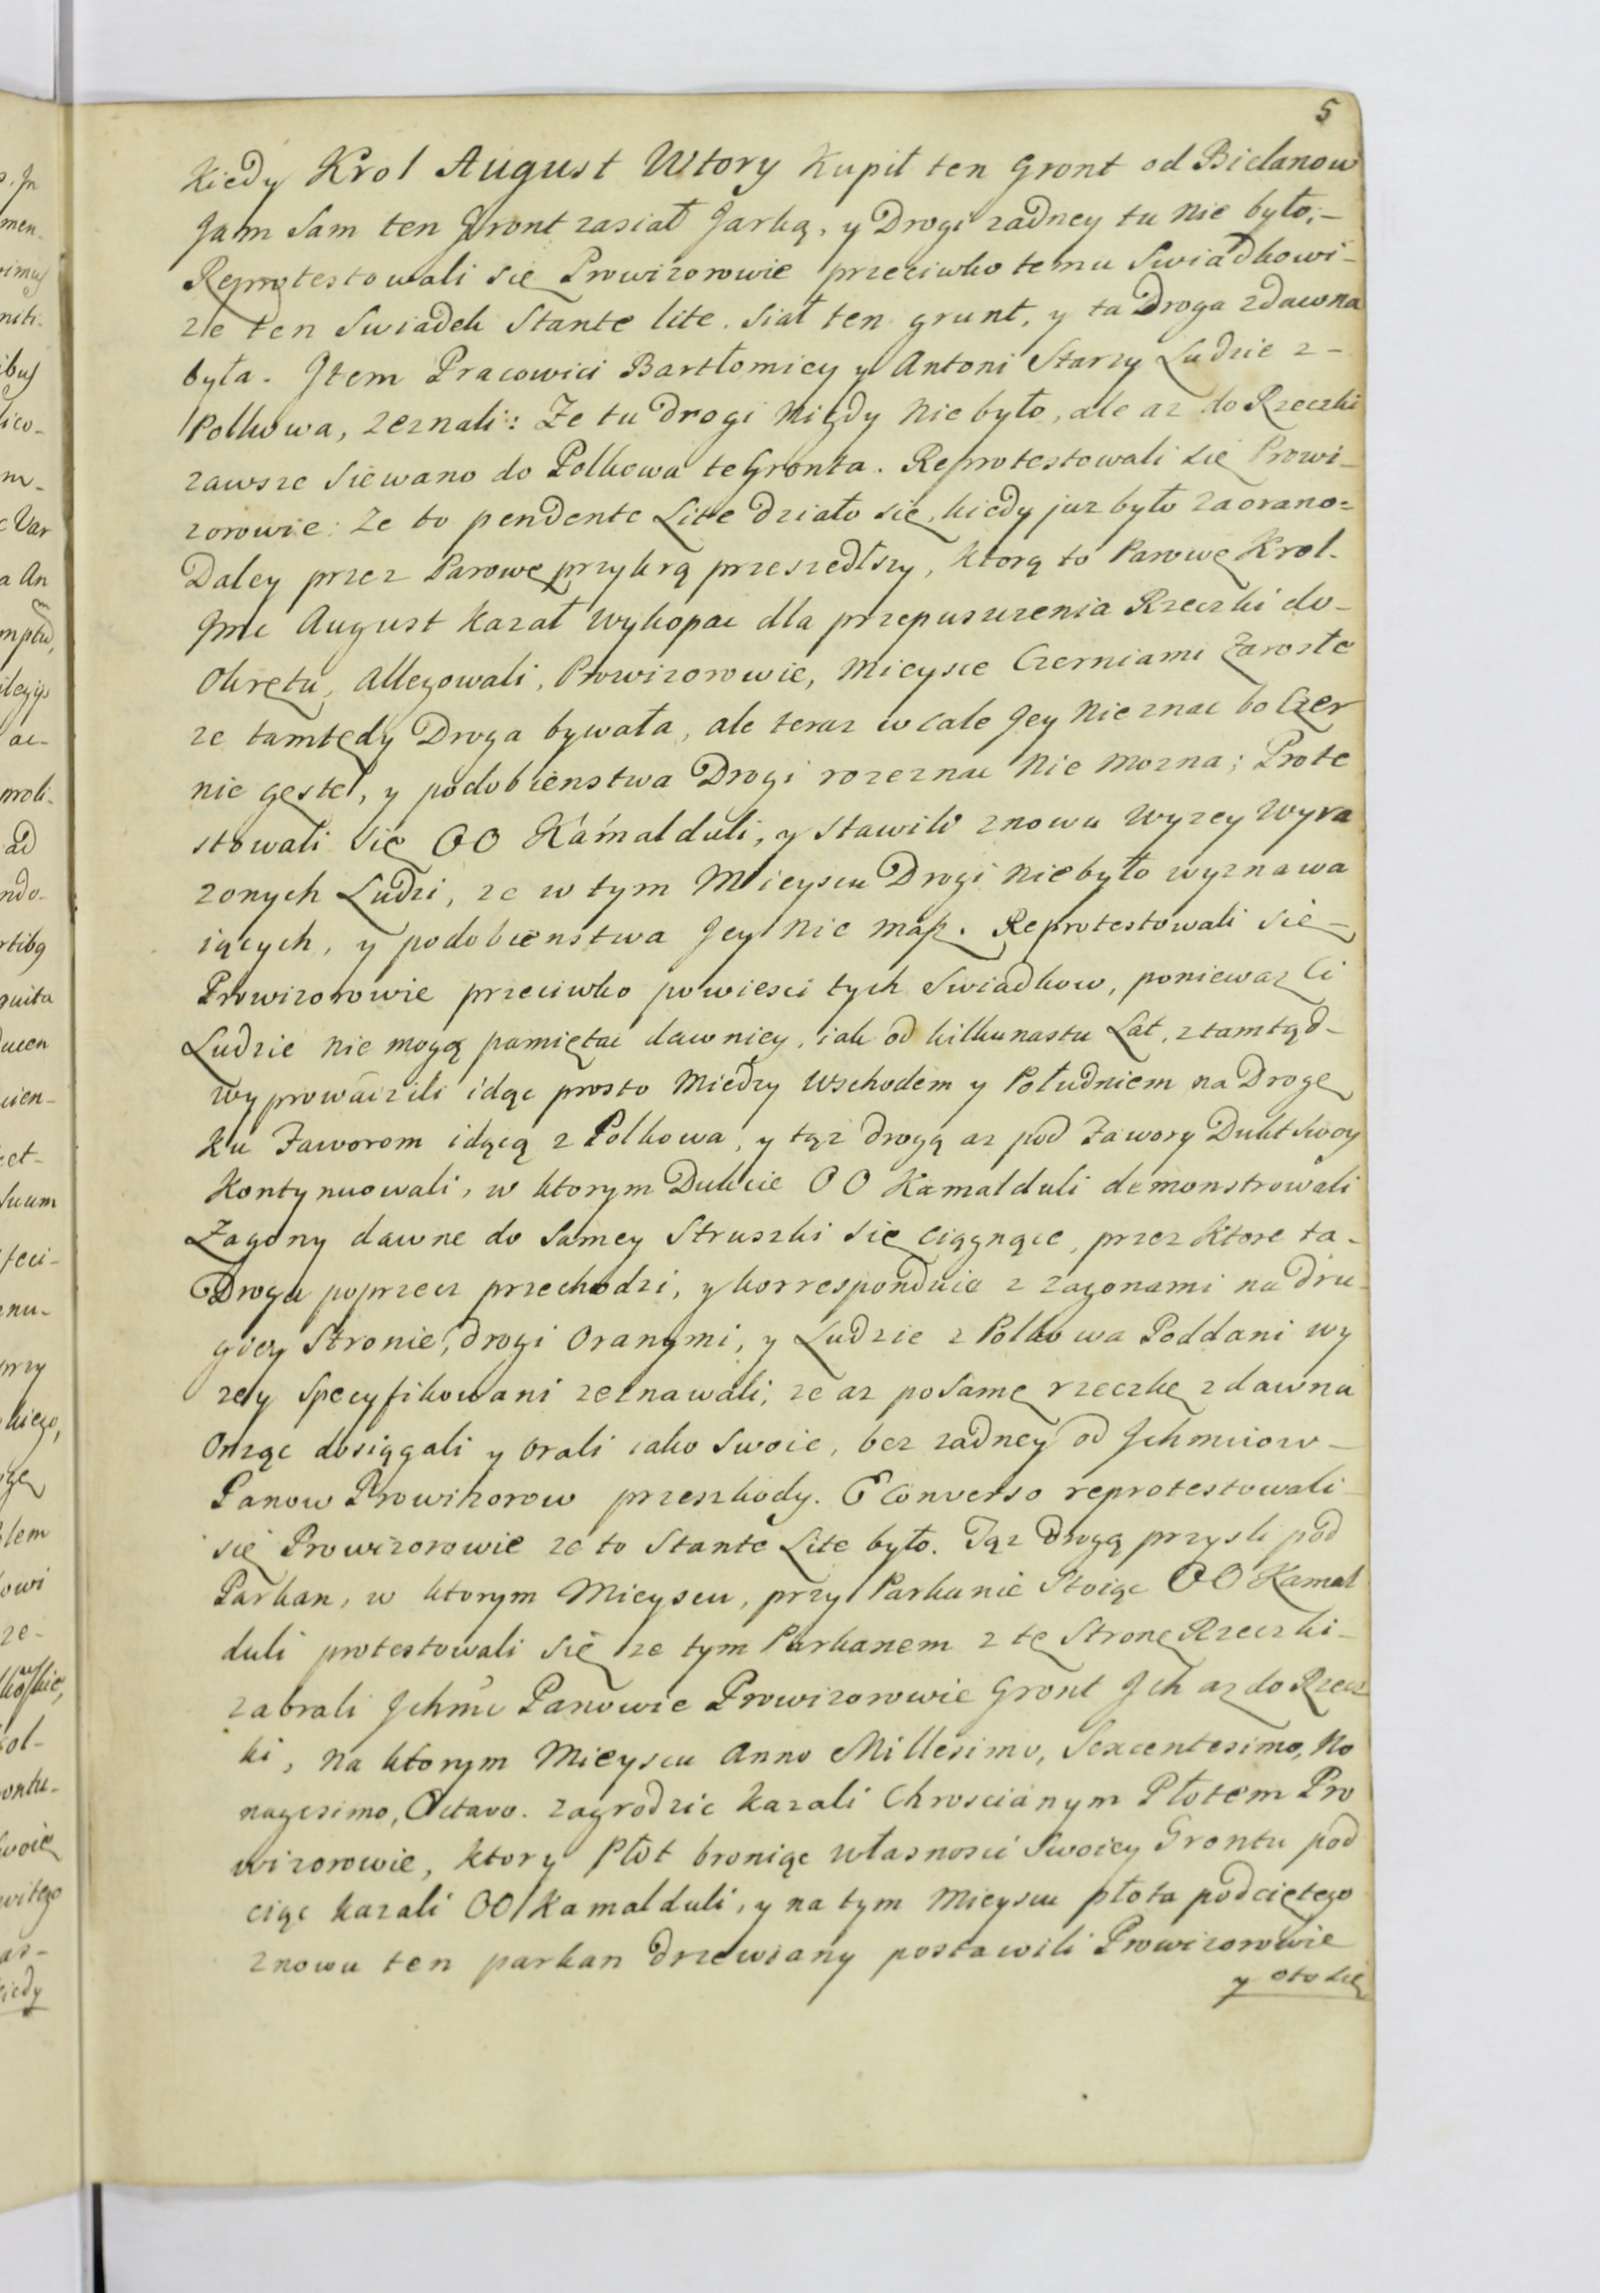 5
Kiedy Krol August Wtory Kupił ten Gront od Bielanow
Jam Sam ten Gront zasiał Jarką, y Drogi zadney tu nie było,–
Reprotestowali się Prowizorowie przeciwko temu Swiadkowi–
ze ten Swiadek Stante lite. siał ten grunt, y ta Droga zdawna
była. Jtem Pracowici Bartłomiey y Antoni Starzy Ludzie z–
Polkowa, zeznali: Ze tu drogi nigdy nie było, ale az do Rzeczki
zawsze siewano do Polkowa te Gronta. Reprotestowali się Prowi–
zorowie: Ze to pendente Lite działo się, kiedy juz było zaorano=
Daley przez Parowę przykrą przeszedłszy, ktorą to Parowę Krol–
Jmc August kazał wykopac dla przepuszczenia Rzeczki do–
Okrętu, Allegowali, Prowizorowie, Mieysce Czerniami zarosłe
ze tamtędy Droga bywała, ale teraz wcale Jey nieznac bo Czer
nie gęste, y podobienstwa Drogi rozeznac nie mozna; Prote
stowali się OO Kamalduli, y stawili znowu wyzey wyra
zonych Ludzi, ze w tym Mieyscu Drogi niebyło wyznawa
iących, y podobienstwa Jey nie masz. Reprotestowali się–
Prowizorowie przeciwko powiesci tych Swiadkow, poniewaz Ci
Ludzie nie mogą pamiętac dawniey, iak od kilkunastu Lat, ztamtąd–
wyprowadzili idąc prosto między Wschodem y Południem na Drogę
ku Faworom idącą z Polkowa, y tąz drogą az pod Fawory Dukt swoy
Kontynuowali, w ktorym Dukcie OO Kamalduli demonstrowali
Zagony dawne do Samey Struszki się ciągnące, przez ktore ta–
Droga poprzecz przechodzi, y korresponduie z zagonami na dru–
giey Stronie, drogi Oranymi, y Ludzie z Polkowa Poddani wy
zey specyfikowani zeznawali, ze az po samę rzeczkę zdawna
Orząc dosiągali y orali iako swoie, bez zadney od Jchmciow–
Panow Prowizorow przeszkody. E Converso reprotestowali
się Prowizorowie ze to Stante Lite było. Tąz Drogą przyszli pod
Parkan, w ktorym Mieyscu, przy Parkanie Stoiąc OO Kamal
duli protestowali się ze tym Parkanem z tę Stronę Rzeczki–
zabrali Jchmc Panowie Prowizorowie Gront Jch az do Rzecz
ki, na ktorym Mieyscu Anno Millesimo, Sexcentesimo, No
nagesimo, Octavo. zagrodzic kazali Chroscianym Płotem Pro
wizorowie, ktory Płot broniąc własnosci Swoiey Grontu pod
ciąc kazali OO Kamalduli, y na tym Mieyscu płota podciętego
znowu ten parkan drzewiany postawili Prowizorowie
y oto się